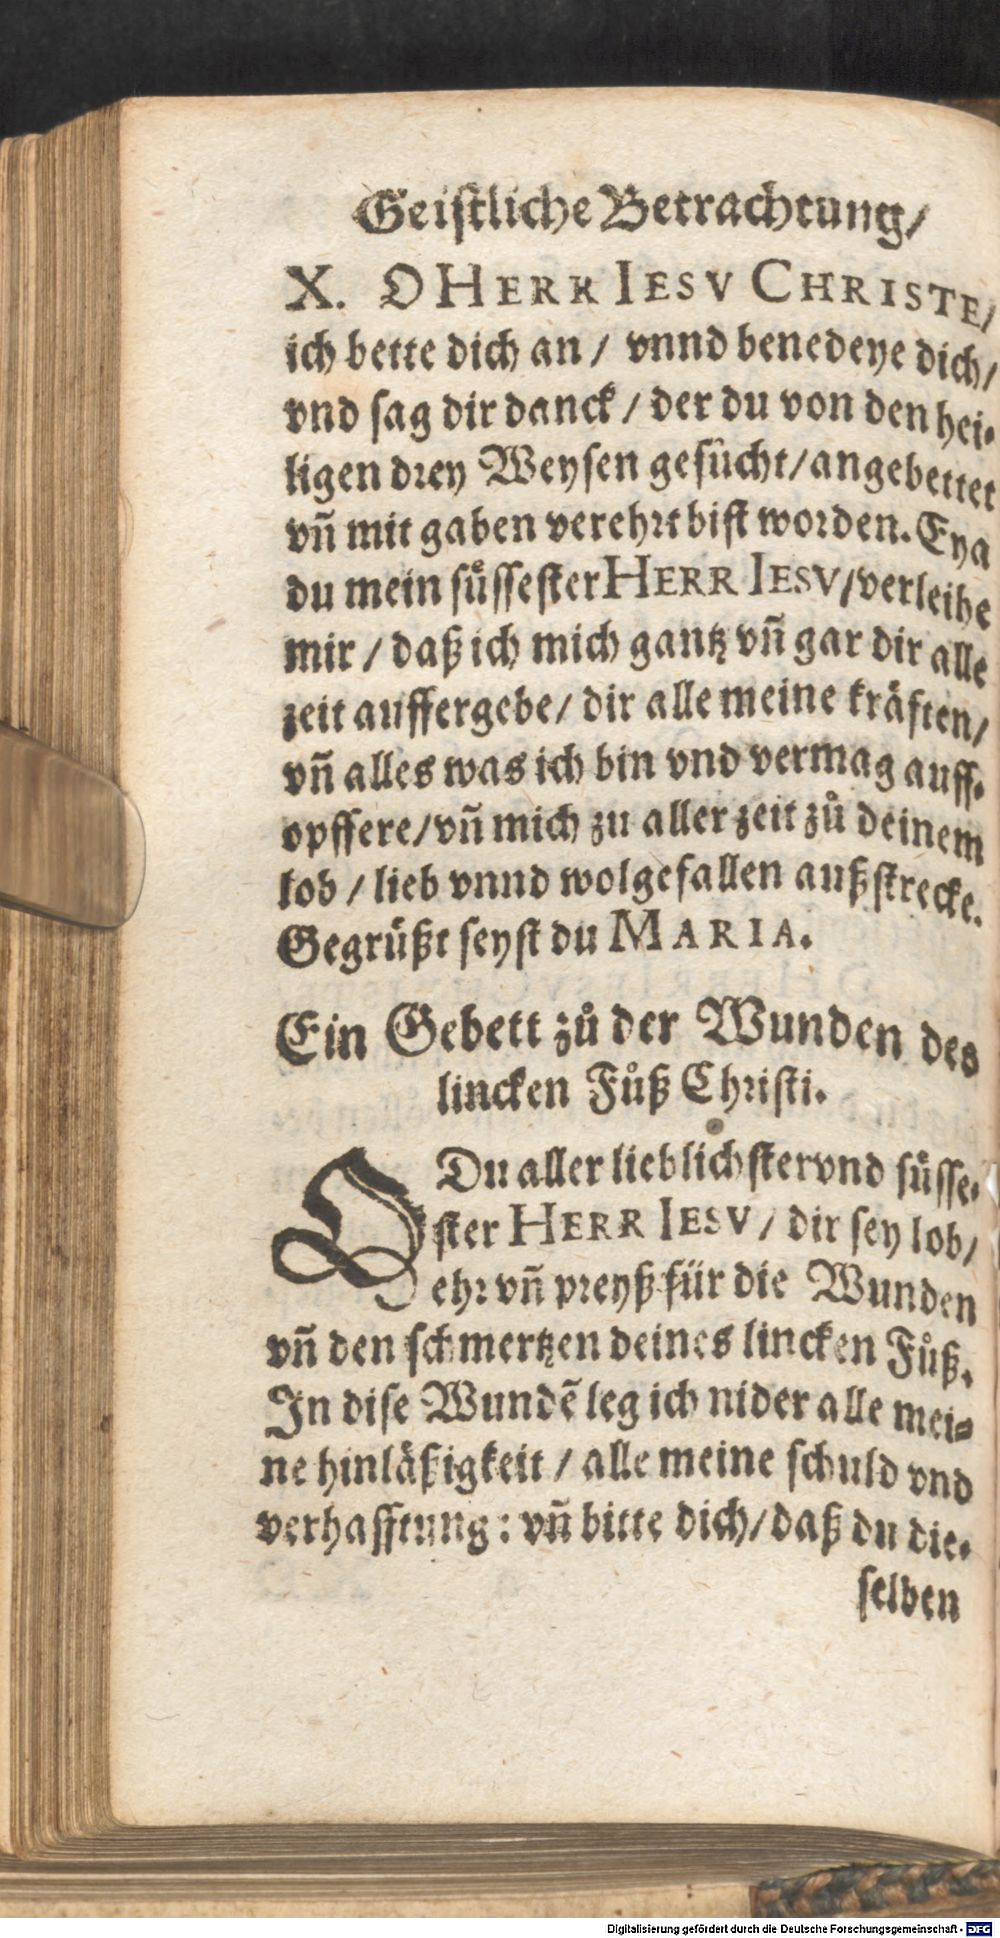 Geistliche Betrachtung/
X. O HERR IESV CHRISTE/
ich bette dich an / vnnd benedeye dich/
vnd sag dir danck / der du von den hei-
ligen drey Weysen gesücht/angebettet
vñ mit gaben verehrt bist worden. Eya
du mein süssester HERR IESV/verleihe
mir / daß ich mich gantz vñ gar dir alle
zeit auffergebe/ dir alle meine kräften/
vñ alles was ich bin vnd vermag auff-
opffere/vñ mich zu aller zeit zů deinem
lob / lieb vnnd wolgefallen außstrecke.
Gegrüßt seyst du MARIA.
Ein Gebett zů der Wunden des
lincken Fůß Christi.
O Du aller lieblichster vnd süsse-
ster HERR IESV / dir sey lob/
ehr vñ preyß für die Wunden
vñ den schmertzen deines lincken Fůß.
In dise Wundẽ leg ich nider alle mei-
ne hinläßigkeit / alle meine schuld vnd
verhafftung: vñ bitte dich/daß du die-
selben
Digitalisierung gefördert durch die Deutsche Forschungsgemeinschaft - DFG